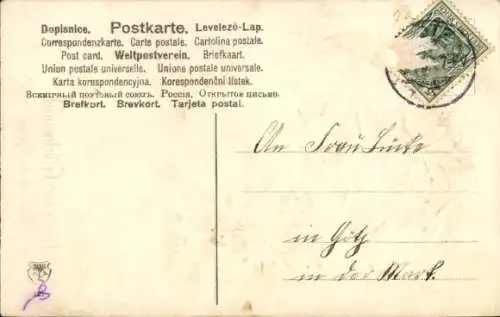 Dopisnice. Postkarte. Levelező-Lap.
Correspondenzkarte. Carte postale. Cartolina postale.
Post card. Weltpostverein. Brefkaart.
Union postale universelle. Unione postale universale.
Karta korespondencyjna. Korespondenční lístek.
Всемірный почтовый союзъ. Россія. Открытое письмо.
Brefkort. Brevkort. Tarjeta postal.
An Frau Lücke
in Götz
in der Mark.